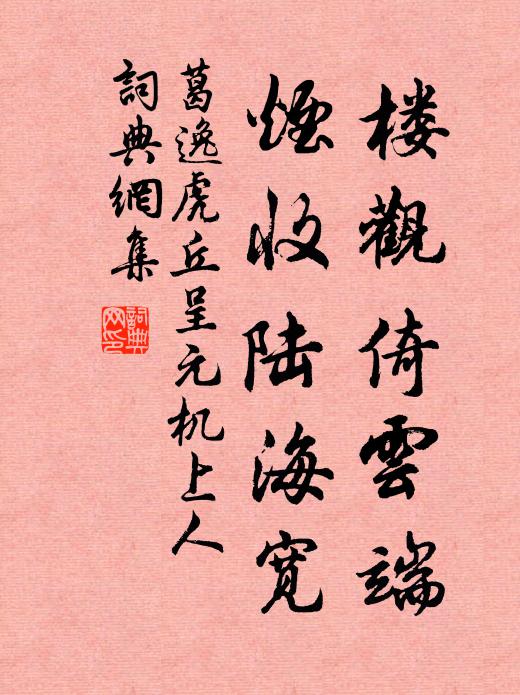 楼觀倚雲端
煙收陆海寬
葛逸虎丘呈元机上人
詞典網集
詞典网印